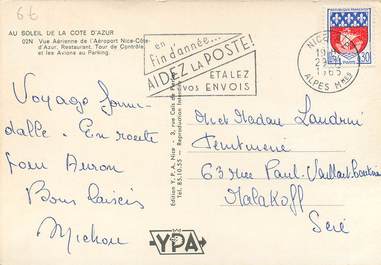 66
AU SOLEIL DE LA COTE D'AZUR
02N Vue Aérienne de l'Aéroport Nice-Côte-
d'Azur. Restaurant. Tour de Contrôle,
et les Avions au Parking.
en
fin d'année...
AIDEZ LA POSTE!
ETALEZ
vos ENVOIS
NICE
1965
ALPES Mmes
0,30
Voyage formi-
dable. En route
pour Auron
Bons baisers
Michou
Edition Y.P.A. Nice - 3, rue
85.10.55 - Reproduction
Mr et Madame Landrin
Teinturerie
63 rue Paul-Vaillant Couturier
Malakoff
Seine
YPA